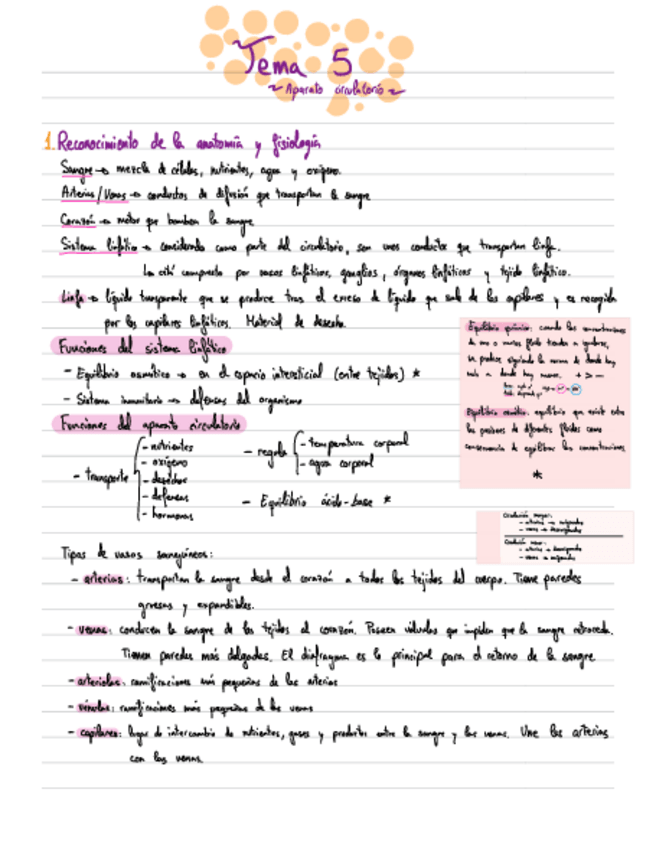 Tema 5
~ Aparato circulatorio ~
1. Reconocimiento de la anatomía y fisiología
Sangre → mezcla de células, nutrientes, agua y oxígeno.
Arterias / Venas → conductos de difusión que transportan la sangre
Corazón → motor que bombea la sangre
Sistema linfático → considerado como parte del circulatorio, son unos conductos que transportan linfa.
La cité compuesto por vasos linfáticos, ganglios, órganos linfáticos y tejido linfático.
Linfa → líquido transparente que se produce tras el exceso de líquido que sale de los capilares y es recogida
por los capilares linfáticos. Material de desecho.
Funciones del sistema linfático
- Equilibrio osmótico → en el espacio intersticial (entre tejidos) *
- Sistema inmunitario → defensas del organismo
Funciones del aparato circulatorio
- transporte
- nutrientes
- oxígeno
- desechos
- defensas
- hormonas
- regula
- temperatura corporal
- agua corporal
- Equilibrio ácido-base *
Equilibrio químico: cuando las concentraciones
de uno o varios fluidos tienden a igualarse,
se produce siguiendo la norma de donde hay
más a donde hay menos. + > -
Equilibrio osmótico: equilibrio que existe entre
las presiones de diferentes fluidos como
consecuencia de equilibrar las concentraciones
*
Circulación mayor:
- arterias → oxigenadas
- venas → desoxigenadas
Circulación menor:
- arterias → desoxigenadas
- venas → oxigenadas
Tipos de vasos sanguíneos:
- arterias: transportan la sangre desde el corazón a todos los tejidos del cuerpo. Tiene paredes
gruesas y expandibles.
- venas: conducen la sangre de los tejidos al corazón. Poseen válvulas que impiden que la sangre retroceda.
Tienen paredes más delgadas. El diafragma es la principal para el retorno de la sangre
- arteriolas: ramificaciones más pequeñas de las arterias
- vénulas: ramificaciones más pequeñas de las venas
- capilares: lugar de intercambio de nutrientes, gases y productos entre la sangre y las venas. Une las arterias
con las venas.